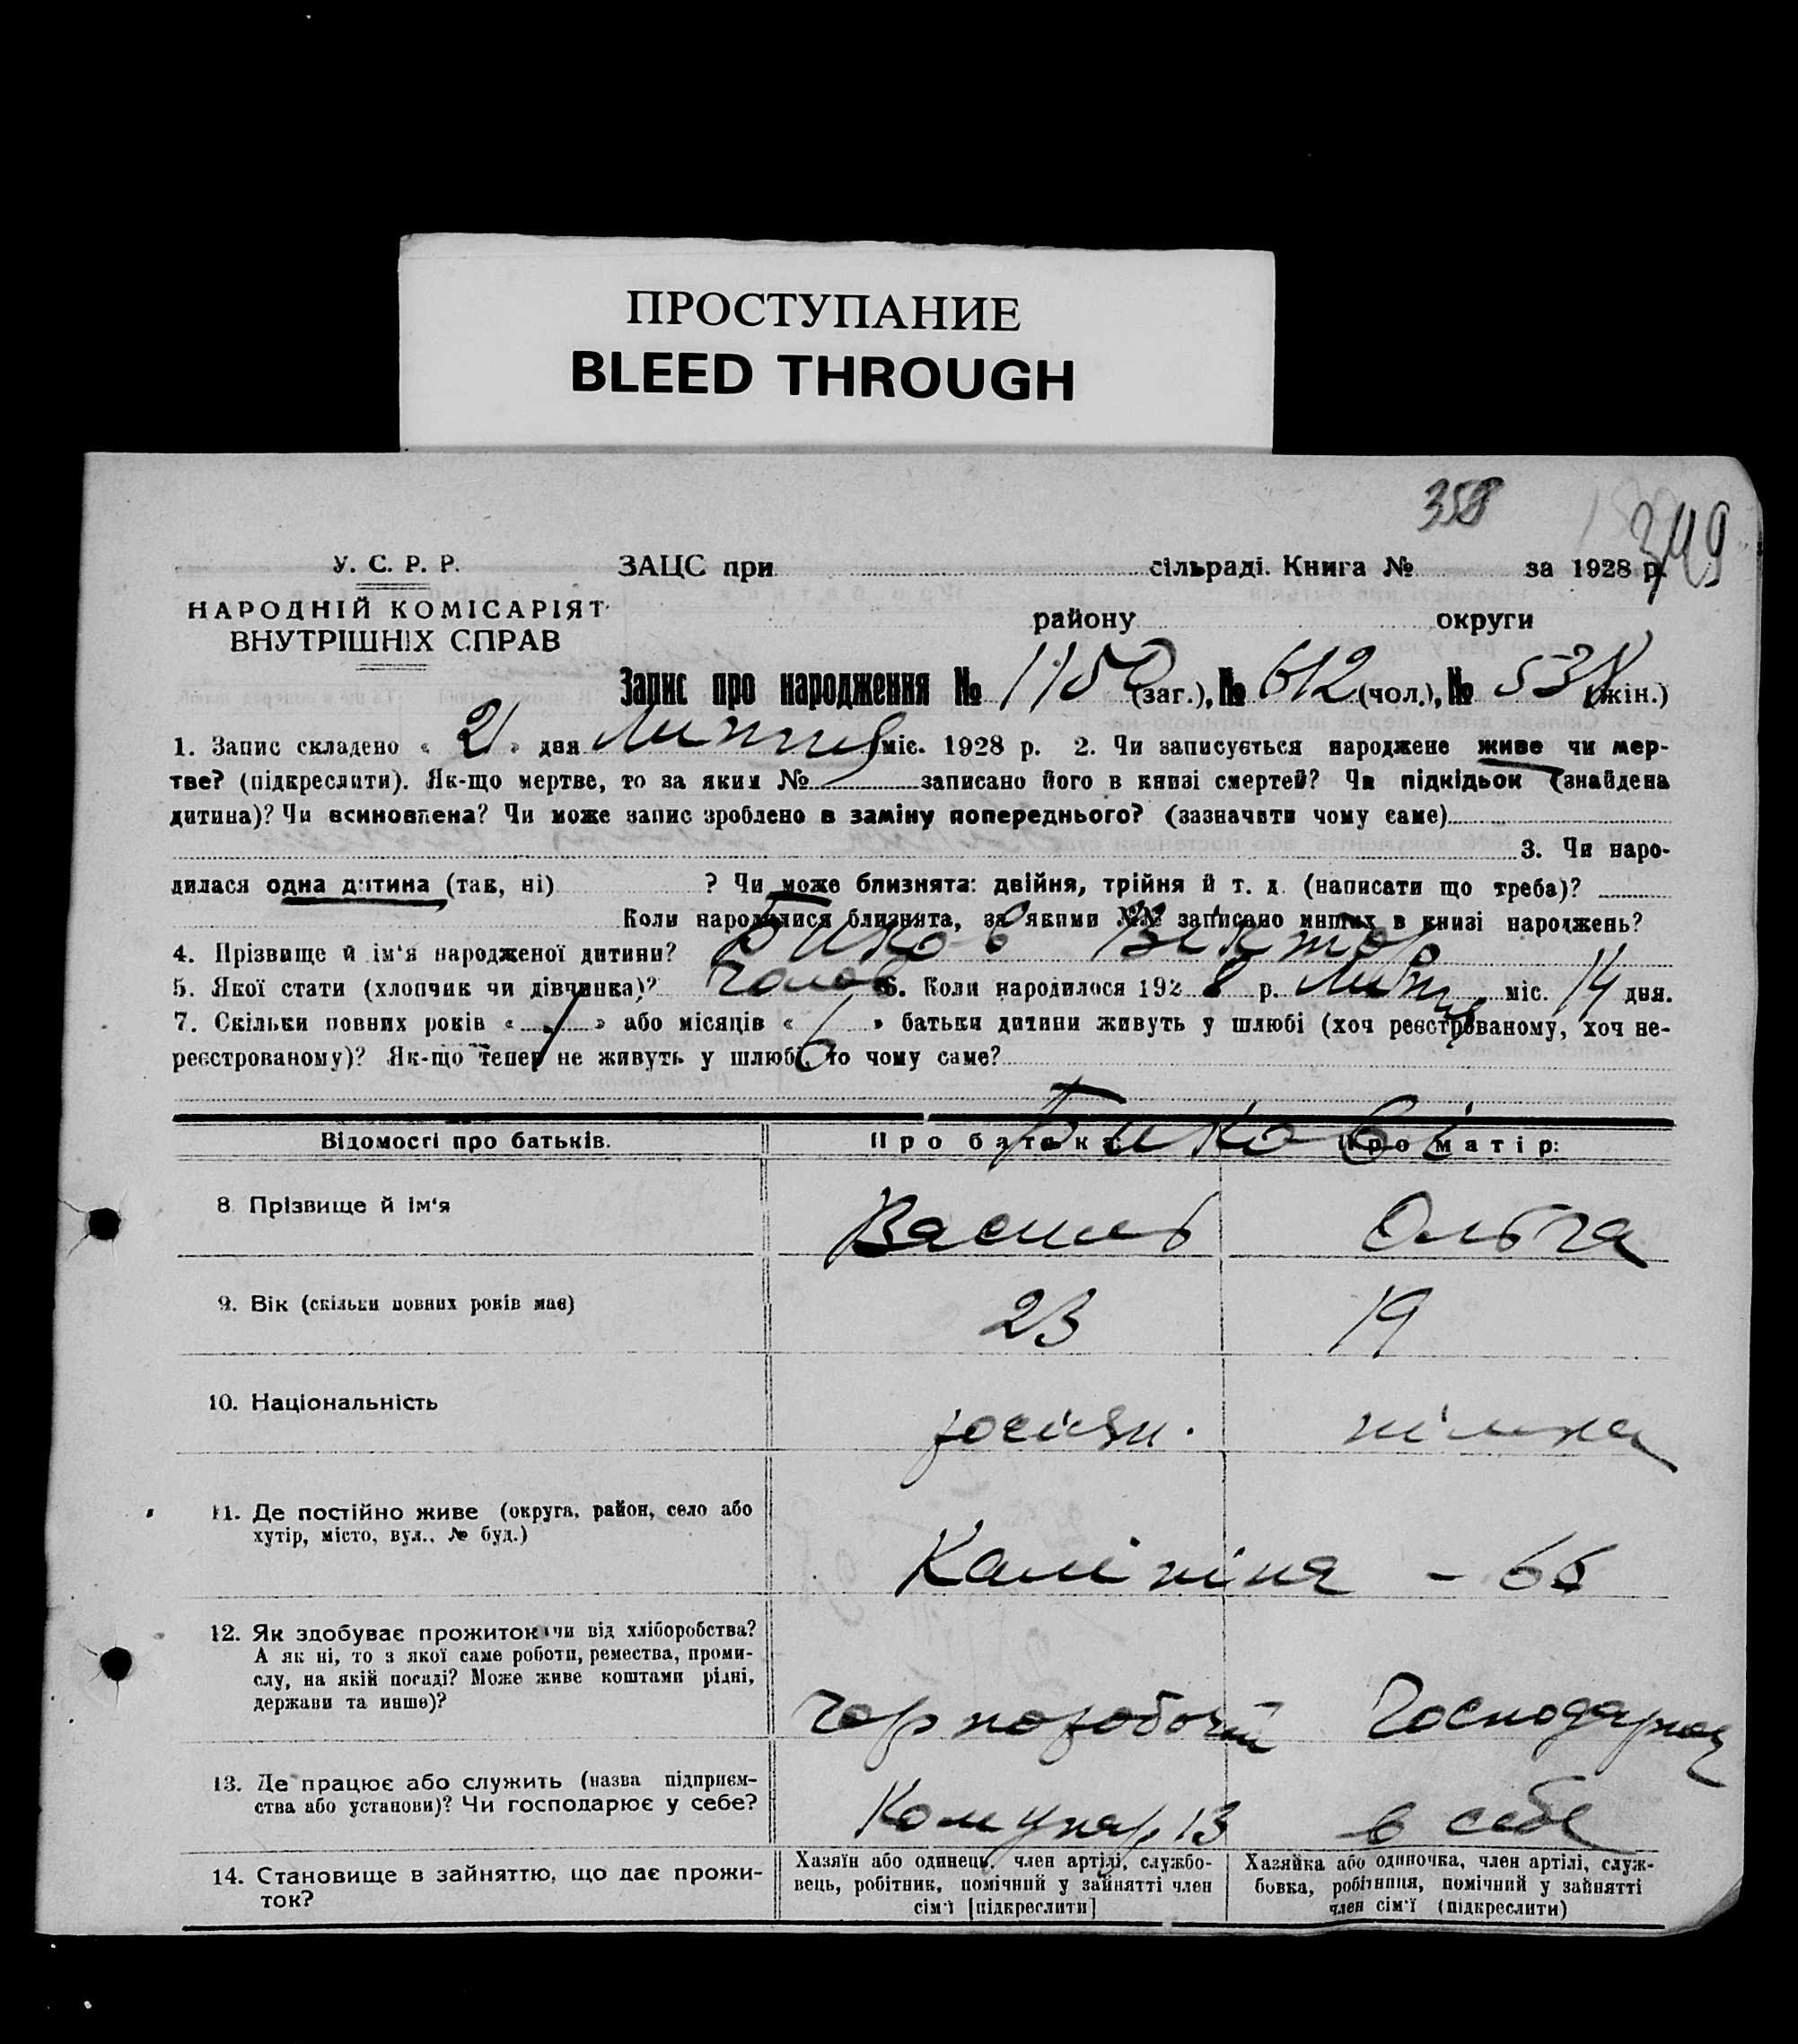 ПРОСТУПАНИЕ
BLEED THROUGH
358
349
У. С. Р. Р.
НАРОДНІЙ КОМІСАРІЯТ
ВНУТРІШНІХ СПРАВ
ЗАЦС при сільраді. Книга № за 1928 р.
району округи
Запис про народження № 1150 (заг.), № 612 (чол.), № 538 (жін.)
1. Запис складено « 21 » дня Липня міс. 1928 р. 2. Чи записується народжене живе чи мер-
тве? (підкреслити). Як-що мертве, то за яким № записано його в книзі смертей? Чи підкідьок (знайдена
дитина)? Чи всиновлена? Чи може запис зроблено в заміну попереднього? (зазначити чому саме)
3. Чи наро-
дилася одна дитина (так, ні) ? Чи може близнята: двійня, трійня й т. д. (написати що треба)?
Коли народилися близнята, за якими №№ записано инших в книзі народжень?
4. Прізвище й ім‘я народженої дитини? Биков Віктор
5. Якої стати (хлопчик чи дівчинка)? Чолов 6. Коли народилося 1928 р. Липня міс. 14 дня.
7. Скільки повних років « 1 » або місяців « 6 » батьки дитини живуть у шлюбі (хоч реєстрованому, хоч не-
реєстрованому)? Як-що тепер не живуть у шлюбі, то чому саме?
Відомості про батьків. Про батька: Про матір:
Бикови
8. Прізвище й ім‘я Василь Ольга
9. Вік (скільки повних років має) 23 19
10. Національність росіян. німка
11. Де постійно живе (округа, район, село або
хутір, місто, вул., № буд.)
Калініна - 66
12. Як здобуває прожиток (чи від хліборобства?
А як ні, то з якої саме роботи, ремества, проми-
слу, на якій посаді? Може живе коштами рідні,
держави та инше)?
Чорноробочий Господарка
13. Де працює або служить (назва підприєм-
ства або установи)? Чи господарює у себе?
Комунар, 13 в себе
14. Становище в зайняттю, що дає прожи-
ток?
Хазяїн або одинець, член артілі, службо-
вець, робітник, помічний у зайнятті член
сім‘ї [підкреслити]
Хазяйка або одиночка, член артілі, служ-
бовка, робітниця, помічний у зайнятті
член сім‘ї (підкреслити)